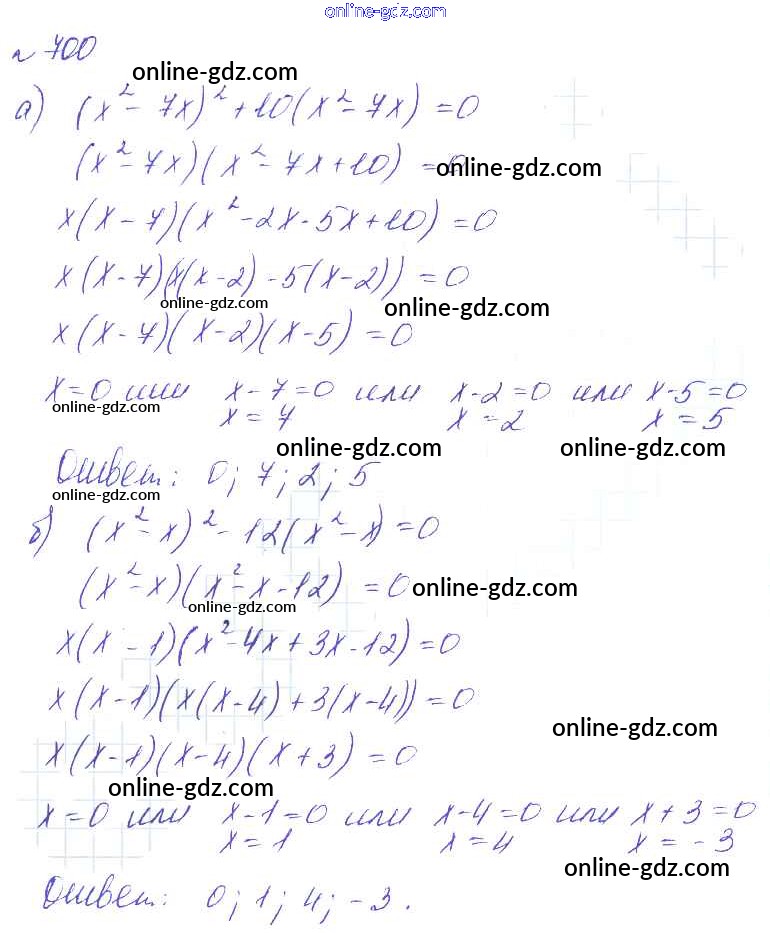 online-gdz.com
№ 700
online-gdz.com
а) (x² - 7x)² + 10(x² - 7x) = 0
(x² - 7x)(x² - 7x + 10) = 0
online-gdz.com
x(x - 7)(x² - 2x - 5x + 10) = 0
x(x - 7)(x(x - 2) - 5(x - 2)) = 0
online-gdz.com
online-gdz.com
x(x - 7)(x - 2)(x - 5) = 0
x = 0 или x - 7 = 0 или x - 2 = 0 или x - 5 = 0
online-gdz.com
x = 7 x = 2 x = 5
online-gdz.com online-gdz.com
Ответ: 0; 7; 2; 5
online-gdz.com
б) (x² - x)² - 12(x² - x) = 0
(x² - x)(x² - x - 12) = 0
online-gdz.com
online-gdz.com
x(x - 1)(x² - 4x + 3x - 12) = 0
x(x - 1)(x(x - 4) + 3(x - 4)) = 0
online-gdz.com
x(x - 1)(x - 4)(x + 3) = 0
online-gdz.com
x = 0 или x - 1 = 0 или x - 4 = 0 или x + 3 = 0
x = 1 x = 4 x = - 3
online-gdz.com
Ответ: 0; 1; 4; -3.